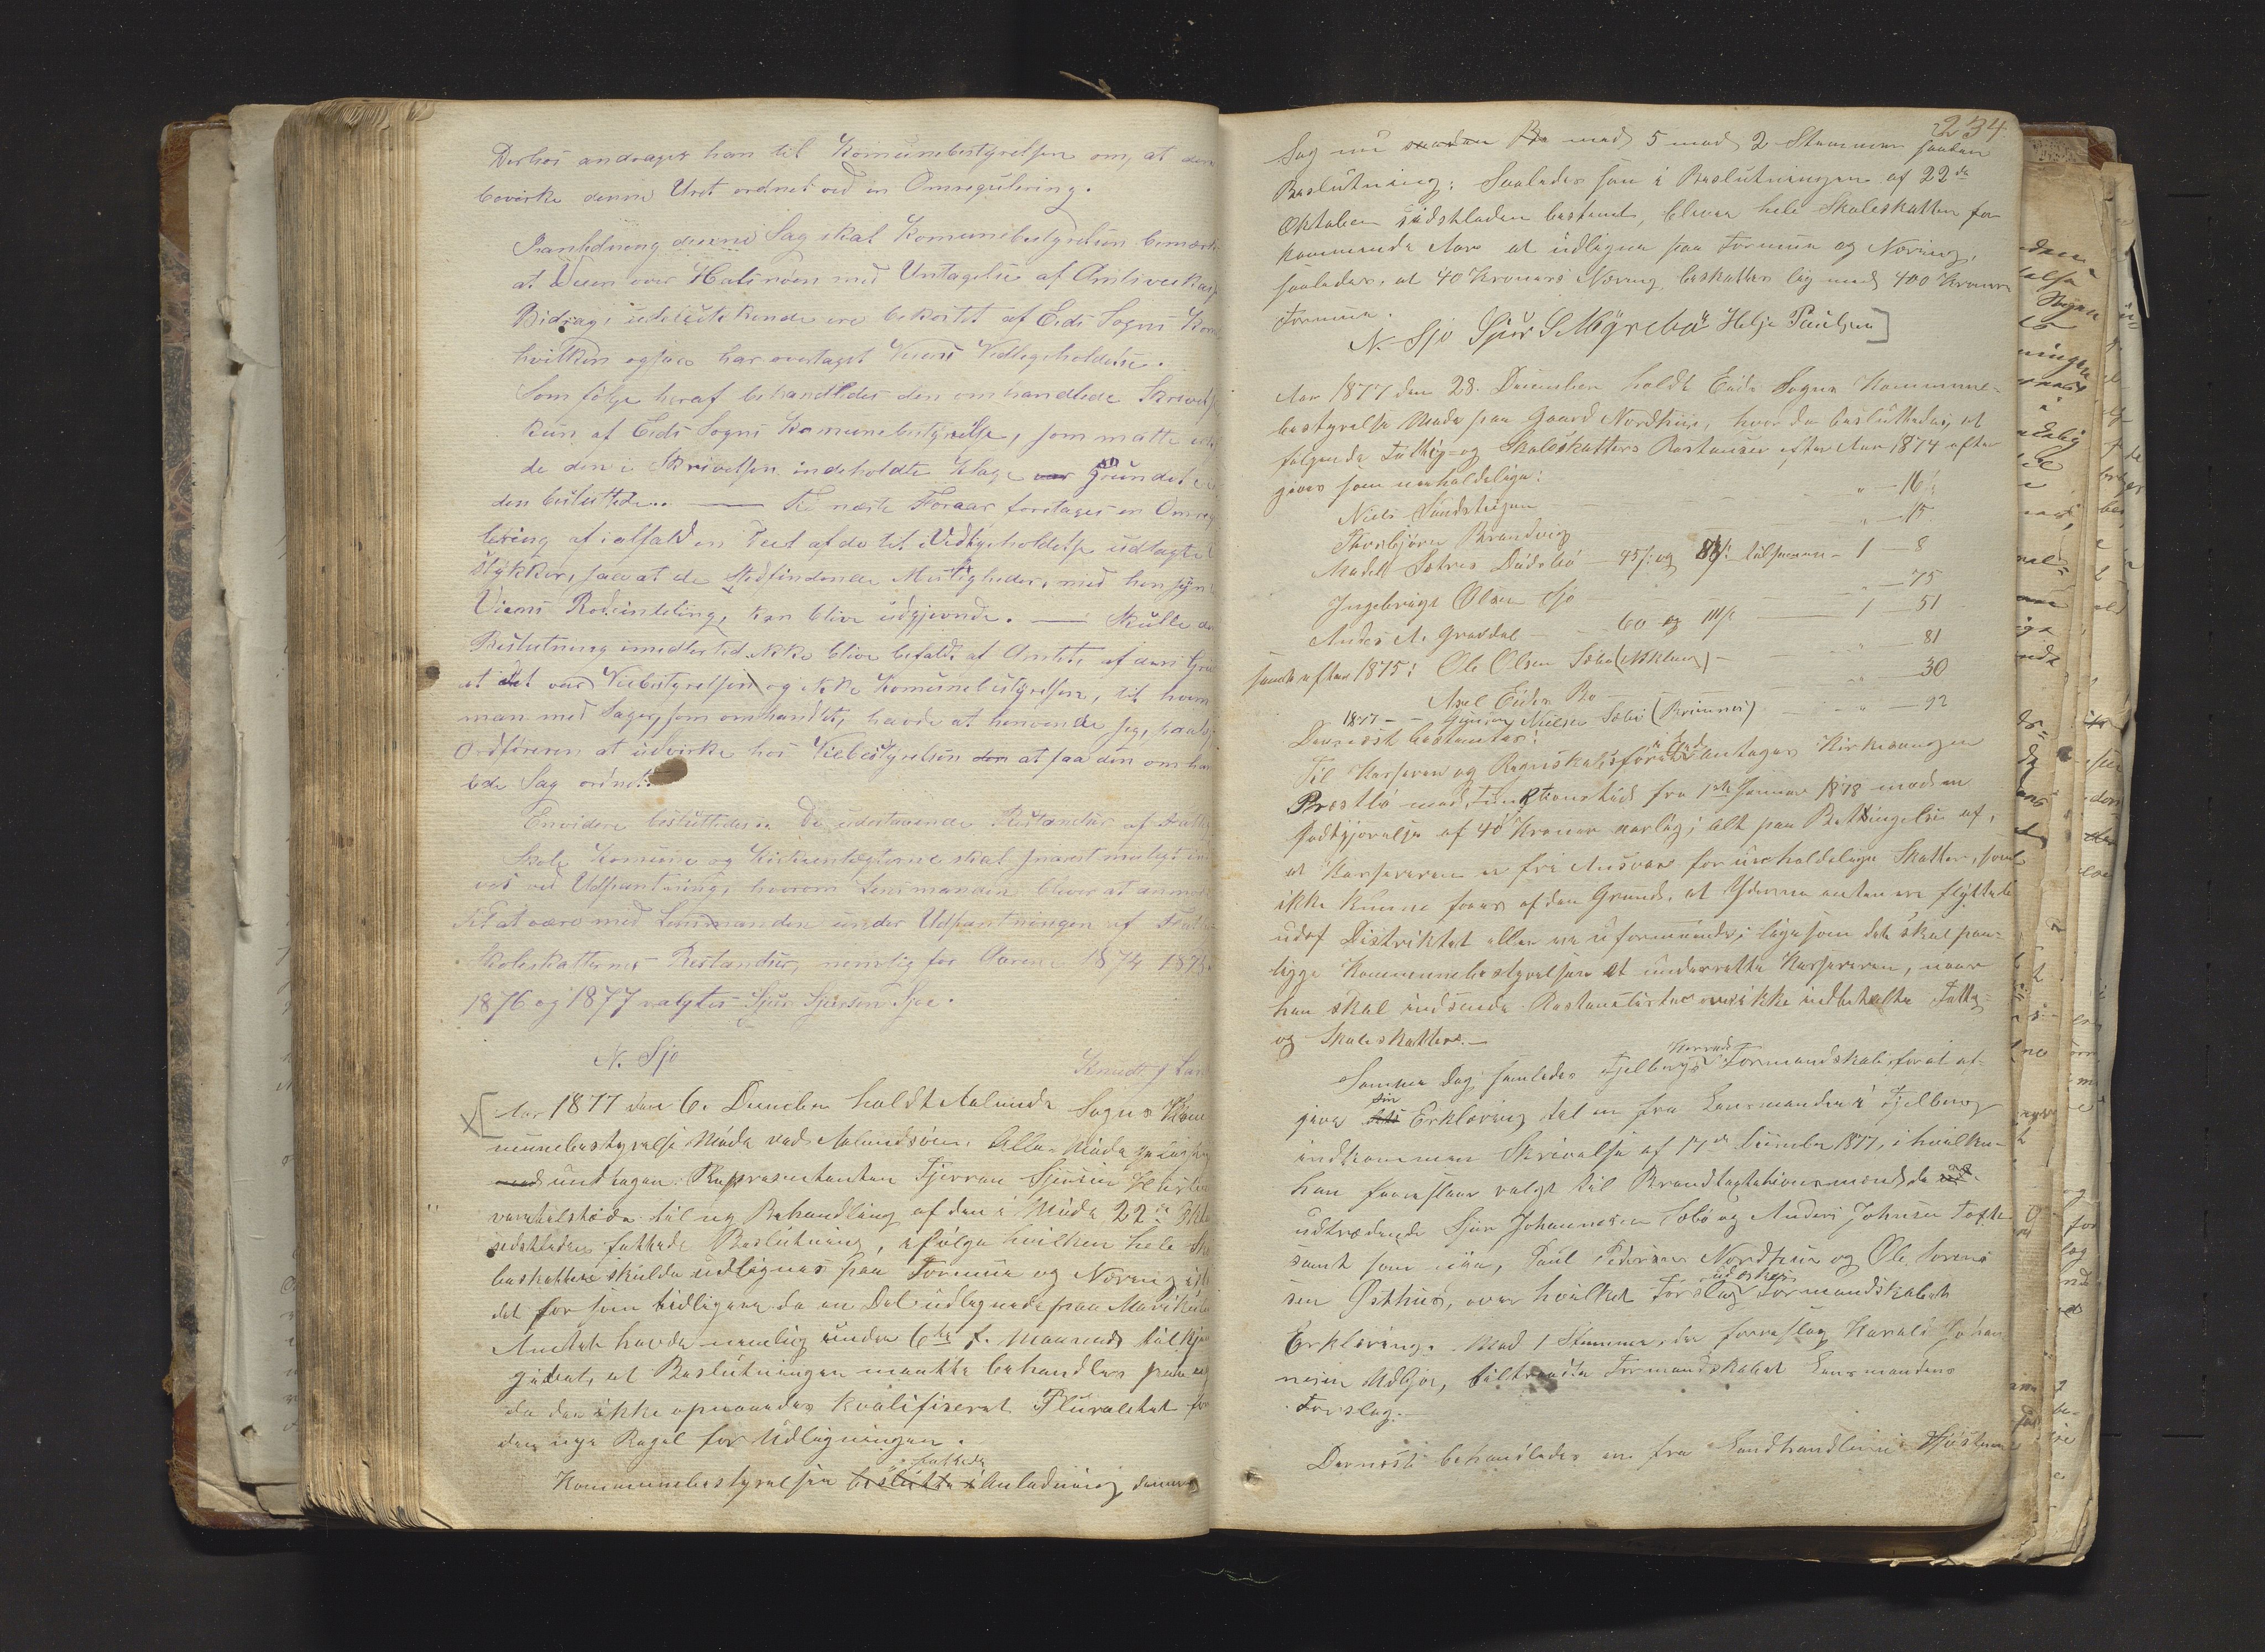 Derhos andrager han til Komunebestyrelsen om, at den
bevirke denne Uret ordnet ved en Omregulering.
I anledning denne Sag skal Komunebestyrelsen bemærke
at Veien over Hatlrøen med Untagelse af Amtsveikass
Bidrag, udelukkende ere bekostet af Eids Sogns Kom
hvilken ogsaa har overtaget Veiens Vedligeholdelse.
Som følge heraf behandledes den omhandlede Skrivelse
kun af Eids Sogns Komunebestyrelse, som maatte
de den i Skrivelsen indeholdte Klage var grundet
den besluttede.. — Til næste Foraar foretages en Omreg
lering af ialfald en Deel af de til Vedligeholdelse udlagte
Stykker, saa at de stedfindende Misligheder, med hensyn
Veiens Rodeinddeling, kan blive udgjevnede. — Skulle den
Beslutning imidlertid ikke blive befaldt af Amtet af den Grund
at det var Veibestyrelsen og ikke Komunebestyrelsen, til hvem
man med Sager, som omhandlet, havde at henvende sig,
Ordføreren at udvirke hos Veibestyrelsen den at faa den omhan
lede Sag ordnet.
Envidere besluttedes: De udestaaende Restantser af Fattig
Skole Komune og Kirkeintægterne skal snarest muligt ind
ves ved Udpantning, hvorom Lensmanden bliver at anmode
Til at være med Lensmanden under Udpantningen af Fattig
Skoleskatternes Restandser, nemlig for Aarene 1874 1875
1876 og 1877 valgtes Sjur Sjursen Sjoe.
N. Sjo
Knudt J Lar
Aar 1877 den 6. December holdt Aalunds Sogns Kom
munebestyrelse Møde ved Aalundsøen. Alle Møde
med undtagen Repræsentanten Fjerran Sjursen
vare tilstæde til ny Behandling af den i Møde 22de Okto
sidstleden fattede Beslutning, ifølge hvilken hele Sko
leskatten skulde udlignes paa Formue og Næring iste
det for som tidligere da en Del udlignedes paa Matrikulen
Amtet havde nemlig under 6te f. Maaneds tilkjen
givet, at Beslutningen maatte behandles paa ny
da der ikke opnaaedes kvalifiseret Pluralitet for
den nye Regel for Udligningen.
Kommunebestyrelsen beslutte i fattede Anledning denne
234.
Sag nu saadan Be med 5 mod 2 Stemmer saadan
Beslutning: Saaledes som i Beslutningen af 22de
Oktober sidstleden bestemt, bliver hele Skoleskatten for
kommende Aar at udligne paa Formue og Næring,
saaledes, at 40 Kroners Næring beskattes lig med 400 Kroners
Formue.
N. Sjo Sjur S Myrebø Helje Paulsen
Aar 1877 den 28. December holdt Eids Sogns Kommune-
bestyrelse Møde paa Gaard Nordhus, hvor da besluttedes, at
følgende Fattig- og Skoleskatters Restanser efter Aar 1874 efter
gives som uerholdelige:
Niels Sundsteigen — — „ — 16
Thorbjørn Brandvig — „ — 15
Madell Sætres Dødsbo — 45/: og tilsammen — 1 8
Ingebrigt Olsen Sjo — — „ — 75
Anders A. Gravdal — 60 og — 1 — 51
samt efter 1875: Ole Olsen Sæbø — „ — 81
Axel Eides Bo — „ — 30
1877 — Gunnar Nielsen Sæbø (Krinnes) — „ — 92
Dernæst bestemtes:
Til Kasserer og Regnskabsfører antages Kirkesanger
Prestbø med Funktionstid fra 1ste Januar 1878 mod en
Godtgjørelse af 40 Kroner aarlig; alt paa Betingelse af,
at Kassereren er fri Ansvar for uerholdelige Skatter, som
ikke kunne faaes af den Grund, at Yderne enten ere flyttede
udaf Distriktet eller ere uformuende; ligesom det skal paa-
ligge Kommunebestyrelsen at underrette Kassereren, naar
han skal indsende Restanselister over ikke indbetalte Fattig
og Skoleskatter. —
Samme Dag samledes Fjelbergs Herreds Formandskab for at af-
give sin Erklæring til en fra Lensmanden i Fjelberg
indkommen Skrivelse af 17de December 1877, i hvilken
han foreslaar valgt til Brandtaxtationsmænd de
udtrædende Sjur Johannesen Sæbø og Anders Johnsen Tofte
samt som nye, Paul Pedersen Nordhus og Ole Sørens
sen Østhus, over hvilket Forslag udeskes Formandskabets
Erklæring. Mod 1 Stemme, der foreslog Harald Johan
nesen Ølkjer, tiltraadte Formandskabet Lensmandens
Forslag. —
Dernæst behandledes en fra Landhandlerne